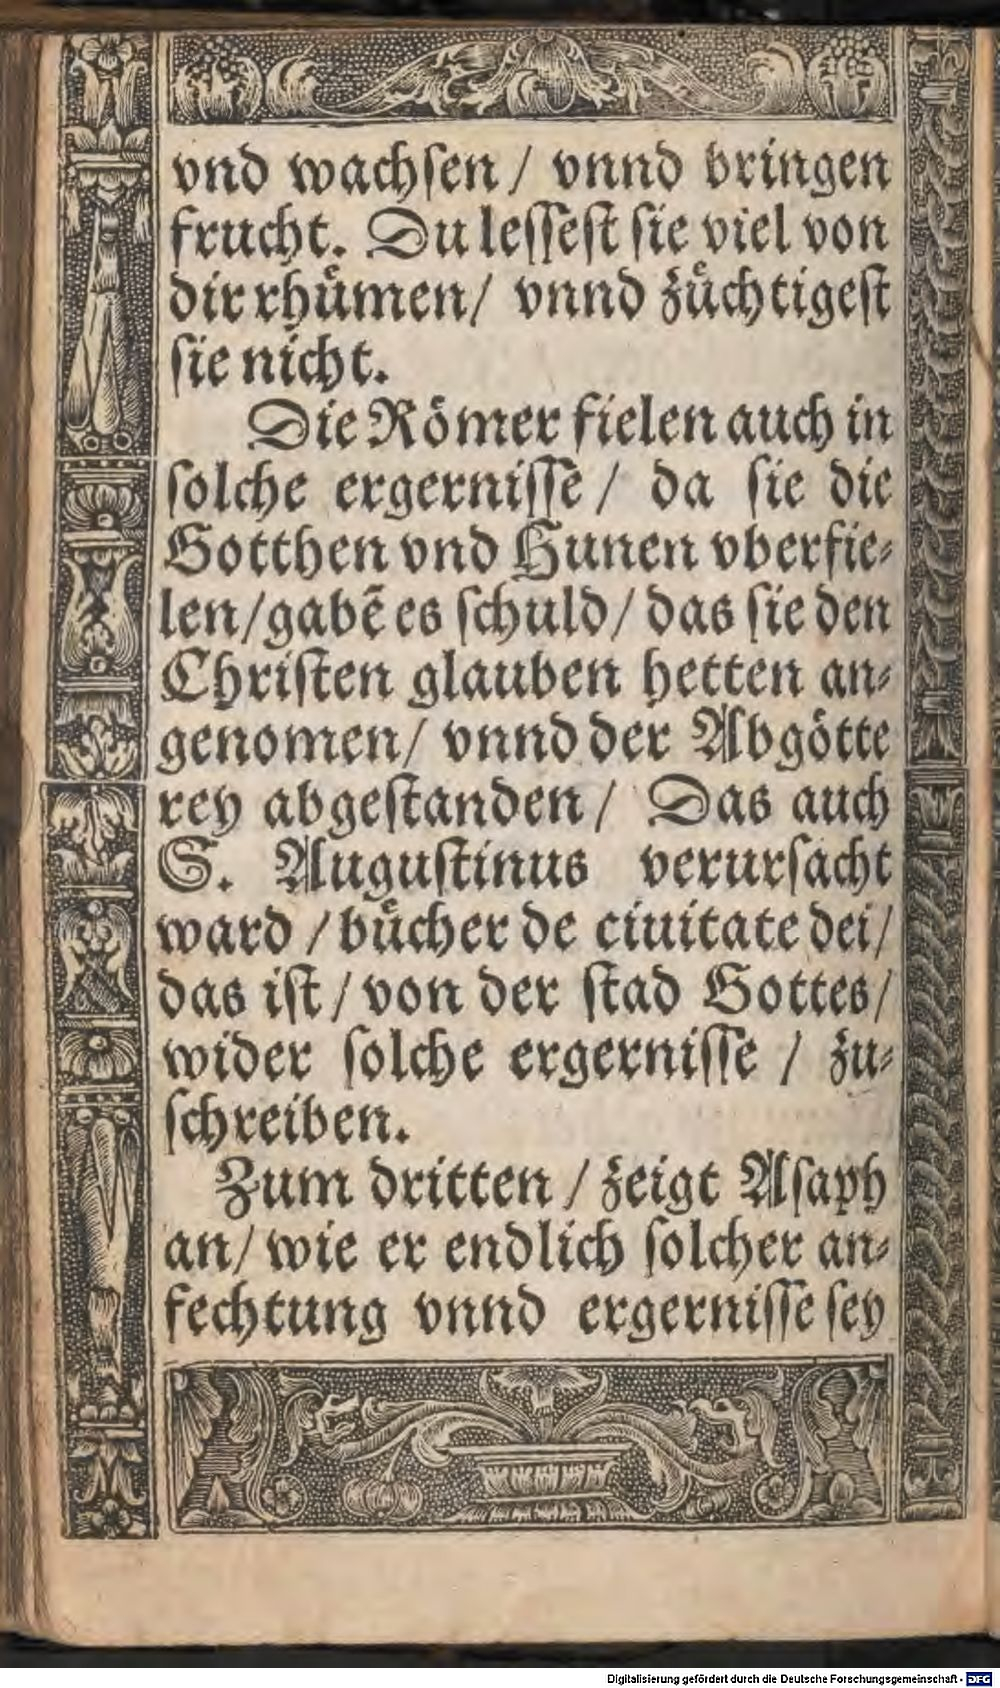 vnd wachſen / vnnd bringen
frucht. Du leſſeſt ſie viel von
dir rhuͤmen / vnnd zuͤchtigeſt
ſie nicht.
Die Roͤmer fielen auch in
ſolche ergerniſſe / da ſie die
Gotthen vnd Hunen vberfie⸗
len / gabẽ es ſchuld / das ſie den
Chriſten glauben hetten an⸗
genomen / vnnd der Abgoͤtte
rey abgeſtanden / Das auch
S. Auguſtinus verurſacht
ward / buͤcher de ciuitate dei /
das iſt / von der ſtad Gottes /
wider ſolche ergerniſſe / zu⸗
ſchreiben.
Zum dritten / zeigt Aſaph
an / wie er endlich ſolcher an⸗
fechtung vnnd ergerniſſe ſey
Digitalisierung gefördert durch die Deutsche Forschungsgemeinschaft - DFG